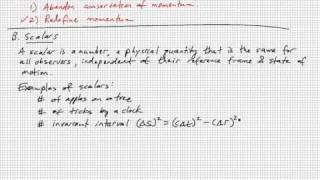 1) Abandon conservation of momentum
✓2) Redefine momentum
B. Scalars
A scalar is a number, a physical quantity that is the same for
all observers, independent of their reference frame & state of
motion.
Examples of scalars:
# of apples on a tree
# of ticks by a clock
# invariant interval (Δs)² = (cΔt)² - (Δr)²